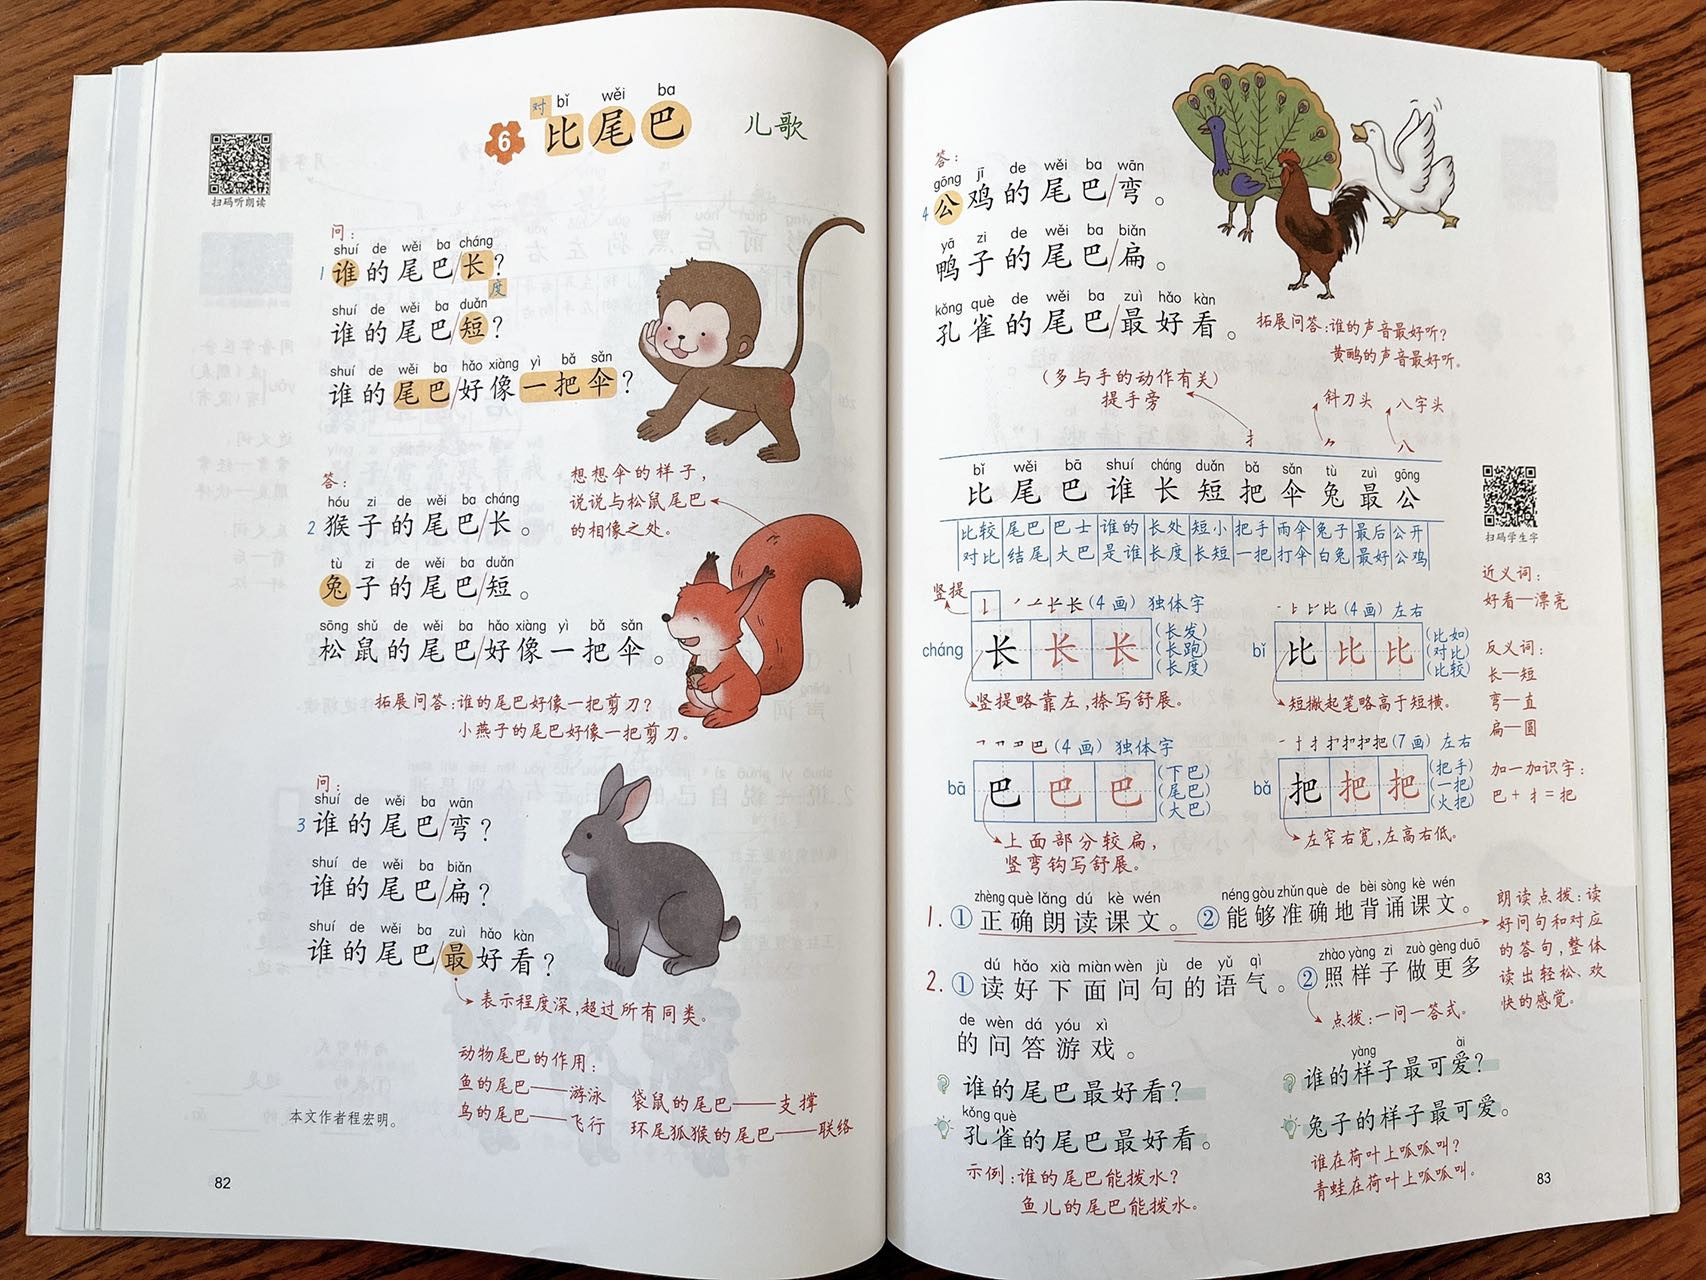 对 bǐ wěi ba
6 比尾巴 儿歌
扫码听朗读
问：
shuí de wěi ba cháng
1 谁的尾巴/长？
度
shuí de wěi ba duǎn
谁的尾巴/短？
shuí de wěi ba hǎo xiàng yì bǎ sǎn
谁的尾巴/好像一把伞？
答：
hóu zi de wěi ba cháng
2 猴子的尾巴/长。
tù zi de wěi ba duǎn
兔子的尾巴/短。
sōng shǔ de wěi ba hǎo xiàng yì bǎ sǎn
松鼠的尾巴/好像一把伞。
想想伞的样子，
说说与松鼠尾巴
的相像之处。
拓展问答：谁的尾巴好像一把剪刀？
小燕子的尾巴好像一把剪刀。
问：
shuí de wěi ba wān
3 谁的尾巴/弯？
shuí de wěi ba biǎn
谁的尾巴/扁？
shuí de wěi ba zuì hǎo kàn
谁的尾巴/最好看？
表示程度深，超过所有同类。
动物尾巴的作用：
鱼的尾巴——游泳
鸟的尾巴——飞行
袋鼠的尾巴——支撑
环尾狐猴的尾巴——联络
本文作者程宏明。
82
答：
gōng jī de wěi ba wān
4 公鸡的尾巴/弯。
yā zi de wěi ba biǎn
鸭子的尾巴/扁。
kǒng què de wěi ba zuì hǎo kàn
孔雀的尾巴/最好看。
拓展问答：谁的声音最好听？
黄鹂的声音最好听。
（多与手的动作有关）
提手旁 斜刀头 八字头
扌 ⺈ 八
bǐ wěi bā shuí cháng duǎn bǎ sǎn tù zuì gōng
比 尾 巴 谁 长 短 把 伞 兔 最 公
比较 尾巴 巴士 谁的 长处 短小 把手 雨伞 兔子 最后 公开
对比 结尾 大巴 是谁 长度 长短 一把 打伞 白兔 最好 公鸡
扫码学生字
近义词：
好看—漂亮
反义词：
长—短
弯—直
扁—圆
加一加识字：
巴＋扌＝把
竖提
（4画）独体字
cháng 长 长 长
（长发）
（长跑）
（长度）
竖提略靠左，捺写舒展。
（4画）左右
bǐ 比 比 比
（比如）
（对比）
（比较）
短撇起笔略高于短横。
（4画）独体字
bā 巴 巴 巴
（下巴）
（尾巴）
（大巴）
上面部分较扁，
竖弯钩写舒展。
（7画）左右
bǎ 把 把 把
（把手）
（一把）
（火把）
左窄右宽，左高右低。
zhèng què lǎng dú kè wén néng gòu zhǔn què de bèi sòng kè wén
1. ①正确朗读课文。②能够准确地背诵课文。
朗读点拨：读
好问句和对应
的答句，整体
读出轻松、欢
快的感觉。
dú hǎo xià miàn wèn jù de yǔ qì zhào yàng zi zuò gèng duō
2. ①读好下面问句的语气。②照样子做更多
de wèn dá yóu xì
的问答游戏。
点拨：一问一答式。
谁的尾巴最好看？
kǒng què
孔雀的尾巴最好看。
yàng ài
谁的样子最可爱？
兔子的样子最可爱。
示例：谁的尾巴能拨水？
鱼儿的尾巴能拨水。
谁在荷叶上呱呱叫？
青蛙在荷叶上呱呱叫。
83